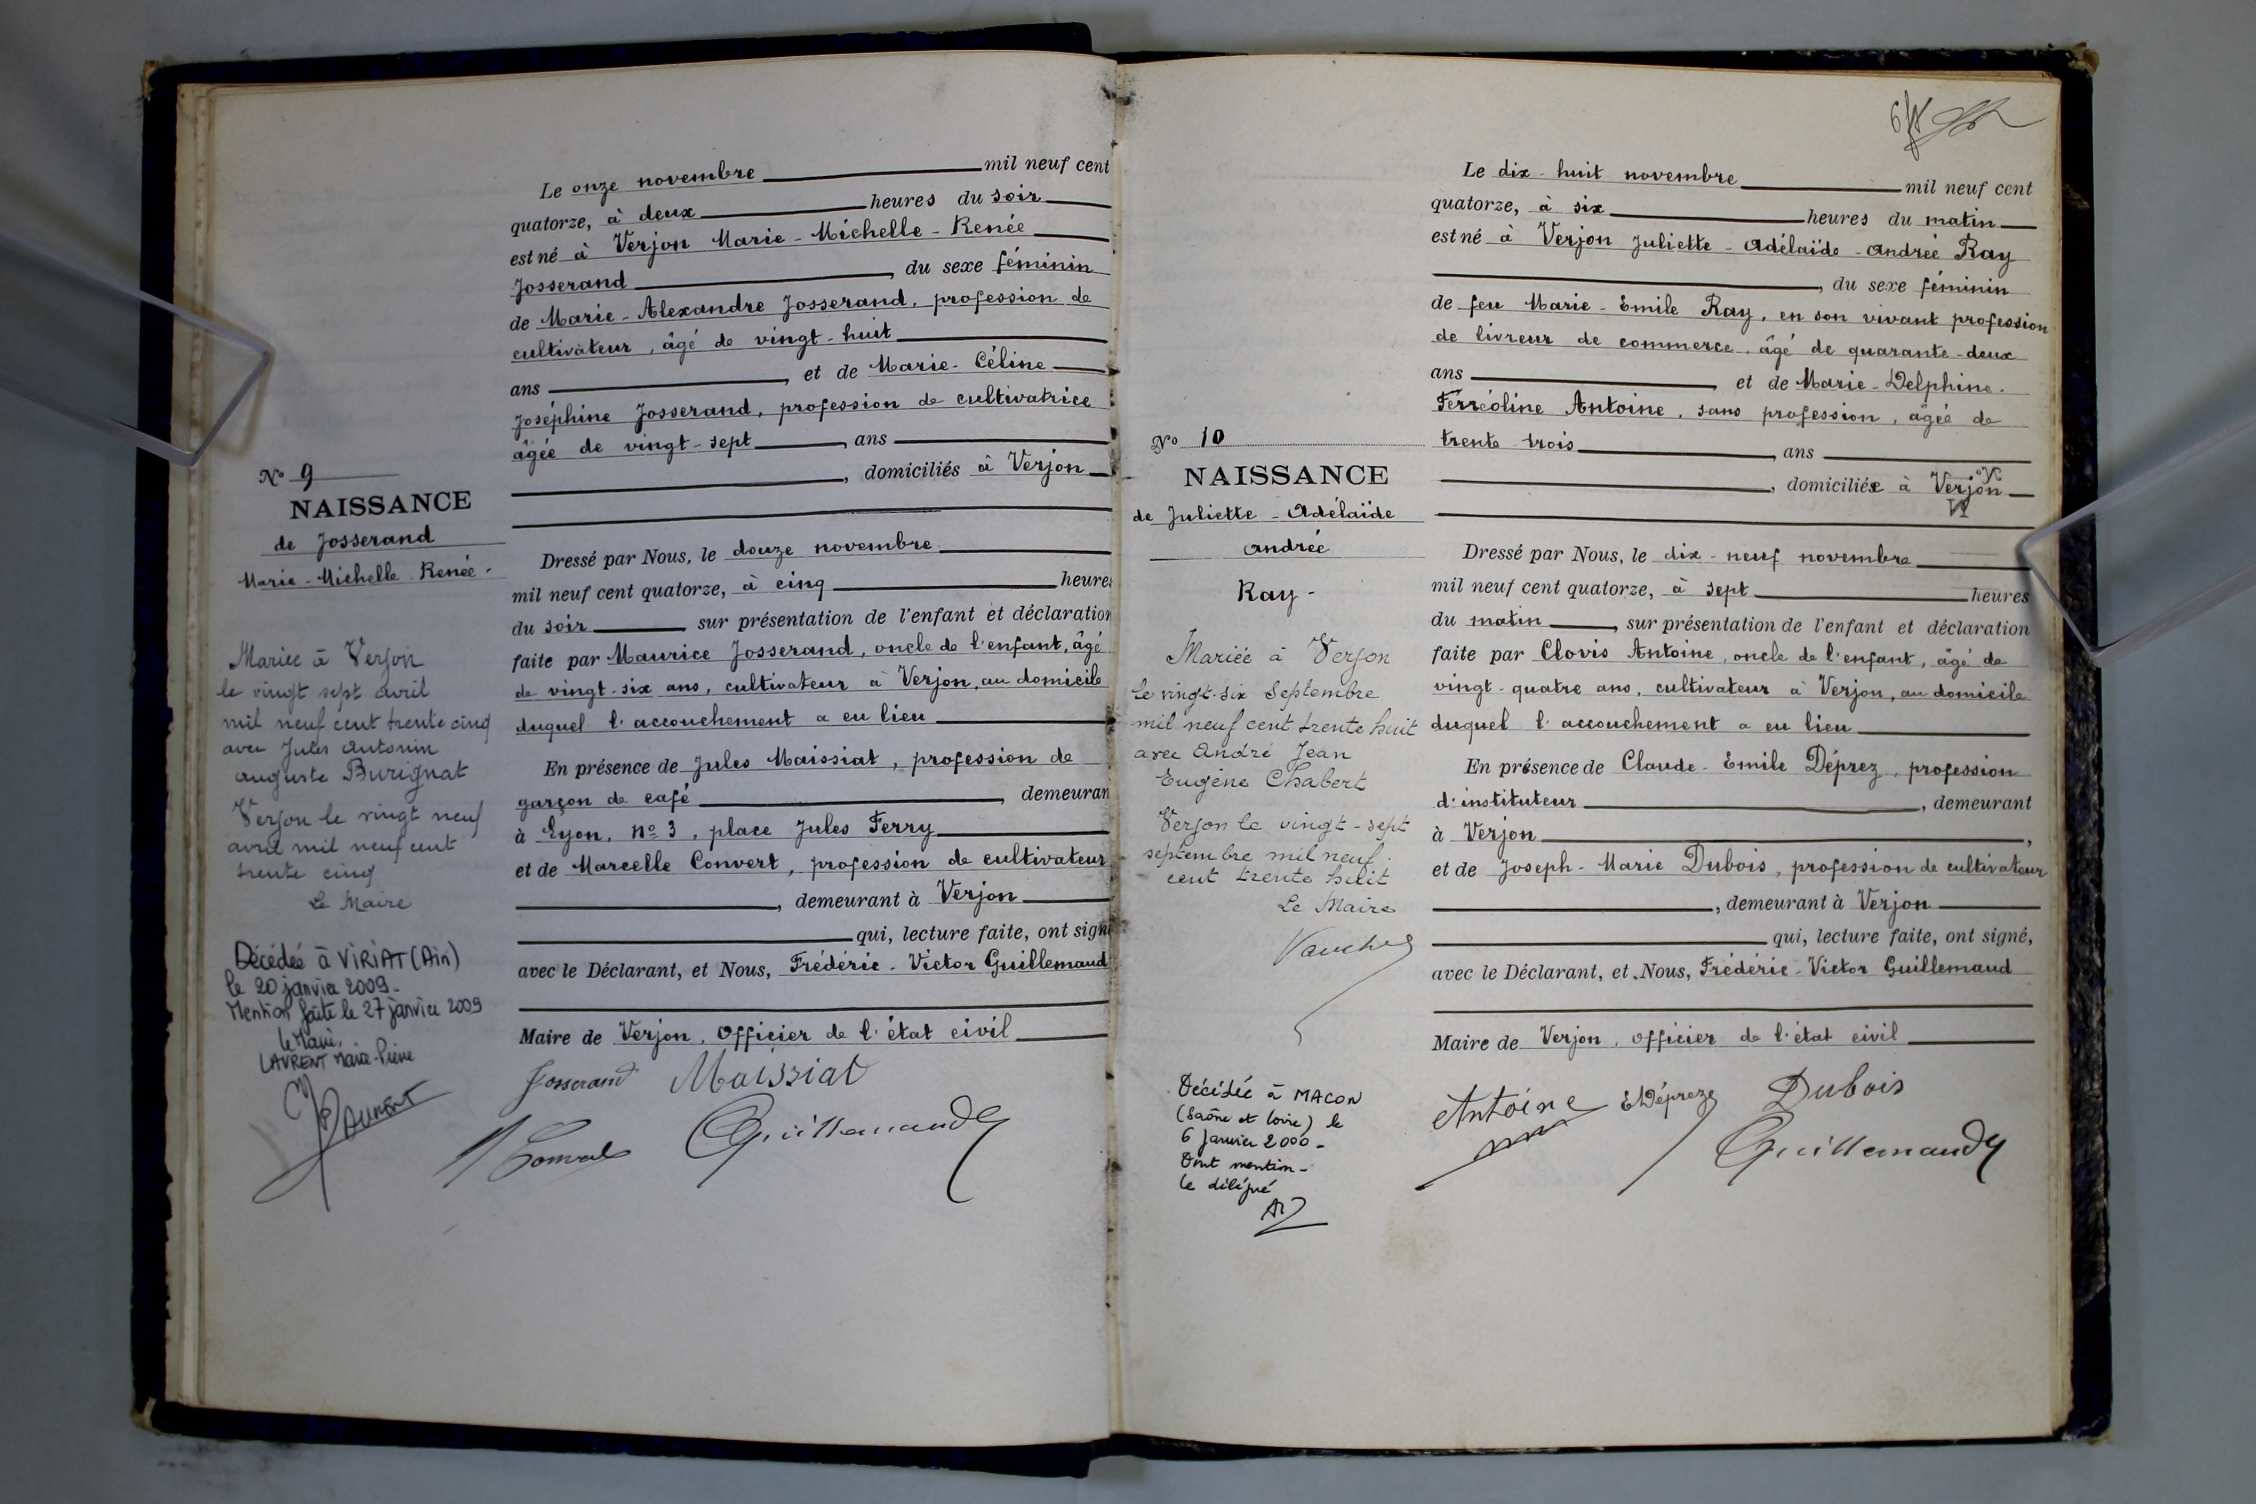 Le onze novembre mil neuf cent
quatorze, à deux heures du soir
est né à Verjon Marie-Michelle-Renée
Josserand, du sexe féminin
de Marie-Alexandre Josserand, profession de
cultivateur, âgé de vingt-huit
ans, et de Marie-Céline
Joséphine Josserand, profession de cultivatrice
âgée de vingt-sept, ans
, domiciliés à Verjon
Nº 9
NAISSANCE
de Josserand
Marie-Michelle Renée-
Dressé par Nous, le douze novembre
mil neuf cent quatorze, à cinq heures
du soir sur présentation de l'enfant et déclaration
faite par Maurice Josserand, oncle de l'enfant, âgé
de vingt-six ans, cultivateur à Verjon, au domicile
duquel l'accouchement a eu lieu
En présence de Jules Maissiat, profession de
garçon de café, demeuran
à Lyon, nº 3, place Jules Ferry
et de Marcelle Convert, profession de cultivateur
, demeurant à Verjon
qui, lecture faite, ont signé
avec le Déclarant, et Nous, Frédéric-Victor Guillemaud
Maire de Verjon, officier de l'état civil
Josserand Maissiat
Guillemaud
Mariée à Verjon
le vingt sept avril
mil neuf cent trente cinq
avec Jules Antonin
Auguste Burignat
Verjon le vingt neuf
avril mil neuf cent
trente cinq
Le Maire
Décédée à VIRIAT (Ain)
le 20 janvier 2009-
Mention faite le 27 janvier 2009
le Maire,
LAURENT Marie-Pierre
LAURENT
Le dix-huit novembre mil neuf cent
quatorze, à six heures du matin
est né à Verjon Juliette-Adélaïde-Andrée Ray
, du sexe féminin
de feu Marie-Emile Ray, en son vivant profession
de livreur de commerce, âgé de quarante-deux
ans, et de Marie-Delphine-
Ferréoline Antoine, sans profession, âgée de
trente-trois, ans
, domiciliée à Verjon
Nº 10
NAISSANCE
de Juliette-Adélaïde
Andrée
Ray-
Dressé par Nous, le dix-neuf novembre
mil neuf cent quatorze, à sept heures
du matin, sur présentation de l'enfant et déclaration
faite par Clovis Antoine, oncle de l'enfant, âgé de
vingt-quatre ans, cultivateur à Verjon, au domicile
duquel l'accouchement a eu lieu
En présence de Claude-Emile Déprez, profession
d'instituteur, demeurant
à Verjon,
et de Joseph-Marie Dubois, profession de cultivateur
, demeurant à Verjon
qui, lecture faite, ont signé,
avec le Déclarant, et Nous, Frédéric-Victor Guillemaud
Maire de Verjon, officier de l'état civil
Antoine EDéprez Dubois
Guillemaud
Mariée à Verjon
le vingt-six Septembre
mil neuf cent trente huit
avec André Jean
Eugène Chabert
Verjon le vingt-sept
septembre mil neuf
cent trente huit
Le Maire
Décédée à MACON
(Saône et Loire) le
6 janvier 2000-
Dont mention-
le délégué